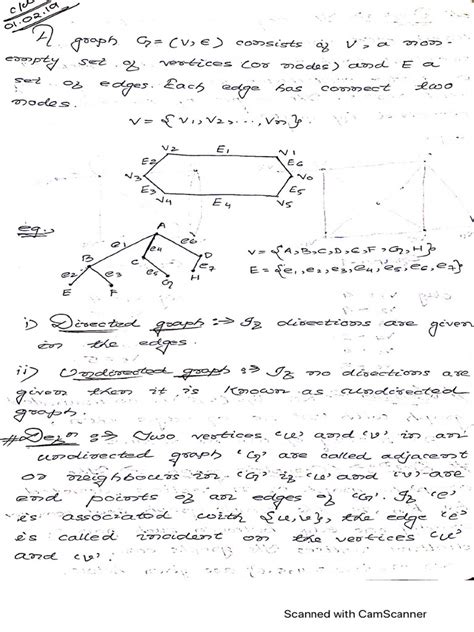 c/w
01.02.19
A graph G = (V, E) consists of V, a non-
empty set of vertices (or nodes) and E a
set of edges. Each edge has connect two
nodes.
V = {V1, V2, ..., Vn}.
V2 E1 V1
E2 E6
V3 V0
E3 E5
V4 E4 V5
eg.,
A
e1 e4 e6
B C D
e2 e3 e5 e7
E F G H
V = {A, B, C, D, E, F, G, H}
E = {e1, e2, e3, e4, e5, e6, e7}
i) Directed graph :→ If directions are given
in the edges.
ii) Undirected graph :→ If no directions are
given then it is known as undirected
graph.
# Defn :→ Two vertices 'u' and 'v' in an
undirected graph 'G' are called adjacent
or neighbours in 'G' if 'u' and 'v' are
end points of an edges of 'G'. If 'e'
is associated with {u, v}, the edge 'e'
is called incident on the vertices 'u'
and 'v'.
Scanned with CamScanner